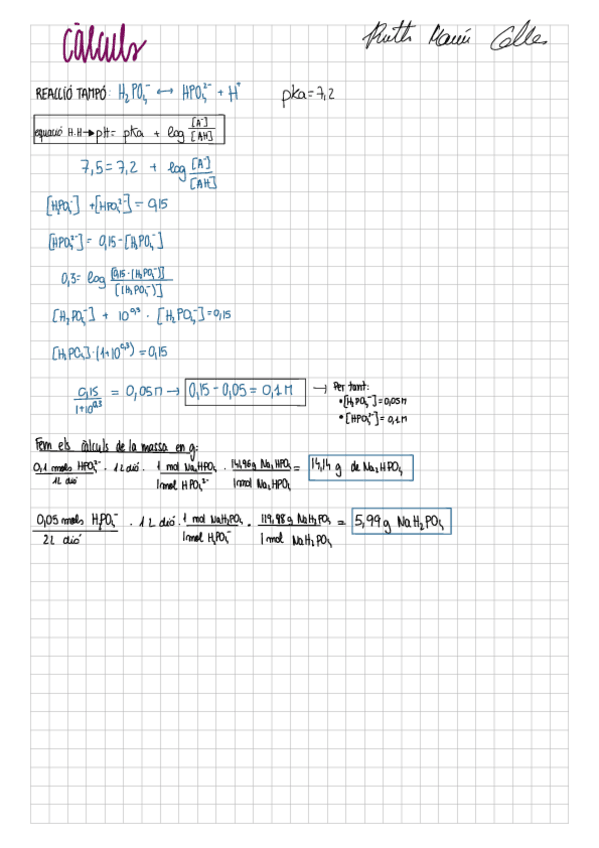 càlculs
Ruth Marín Colles
REACCIÓ TAMPÓ: H₂PO₄⁻ ⟷ HPO₄²⁻ + H⁺ pka = 7,2
equació H-H → pH = pka + log [A⁻]/[AH]
7,5 = 7,2 + log [A⁻]/[AH]
[H₂PO₄⁻] + [HPO₄²⁻] = 0,15
[HPO₄²⁻] = 0,15 - [H₂PO₄⁻]
0,3 = log [0,15 - [H₂PO₄⁻)]/[(H₂PO₄⁻)]
[H₂PO₄⁻] + 10^0,3 · [H₂PO₄⁻] = 0,15
[H₂PO₄] · (1+10^0,3) = 0,15
0,15/1+10^0,3 = 0,05M → 0,15 - 0,05 = 0,1M → Per tant:
• [H₂PO₄⁻] = 0,05M
• [HPO₄²⁻] = 0,1M
Fem els càlculs de la massa en g:
0,1 mols HPO₄²⁻/1L dió · 1L dió · 1 mol Na₂HPO₄/1mol HPO₄²⁻ · 141,96g Na₂HPO₄/1mol Na₂HPO₄ = 14,14 g de Na₂HPO₄
0,05 mols H₂PO₄⁻/2L dió · 1L dió · 1 mol NaH₂PO₄/1mol H₂PO₄⁻ · 119,98g NaH₂PO₄/1 mol NaH₂PO₄ = 5,99g NaH₂PO₄